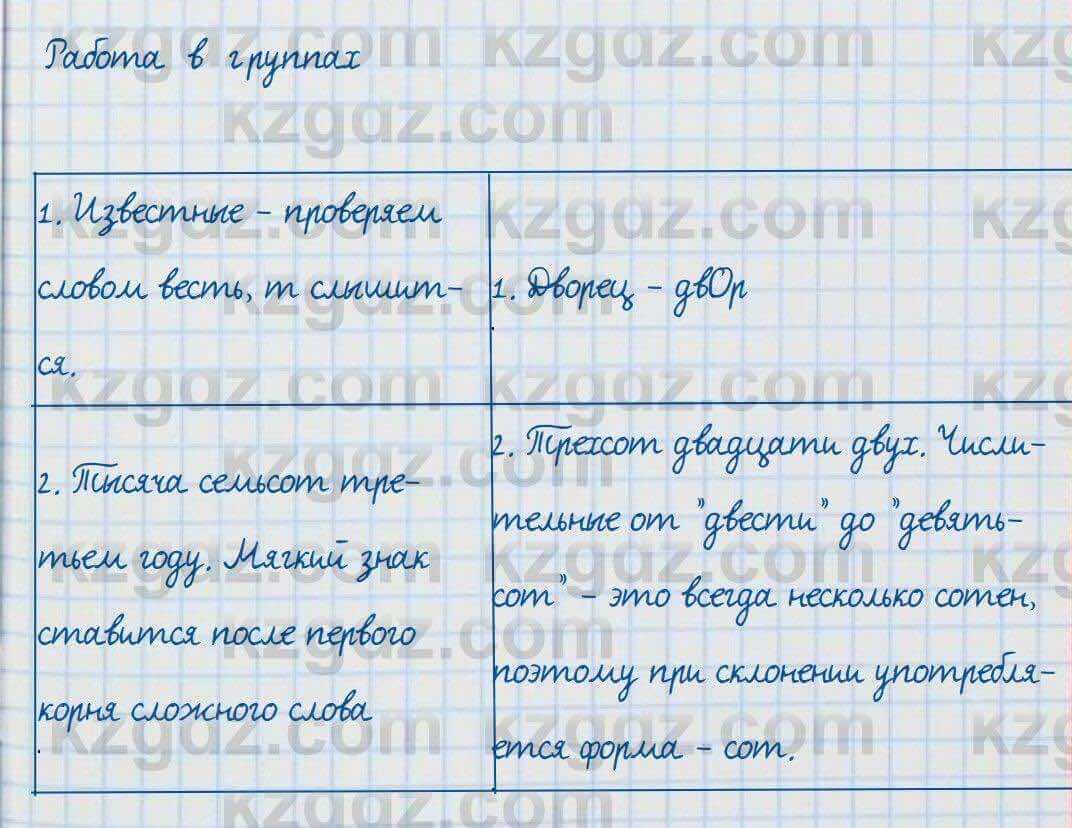 Работа в группах
1. Известные - проверяем
словом весть, т слышит-
ся.
1. Дворец - двОр
2. Тысяча семьсот тре-
тьем году. Мягкий знак
ставится после первого
корня сложного слова
2. Трехсот двадцати двух. Числи-
тельные от "двести" до "девять-
сот" - это всегда несколько сотен,
поэтому при склонении употребля-
ется форма - сот.
kzgaz.com